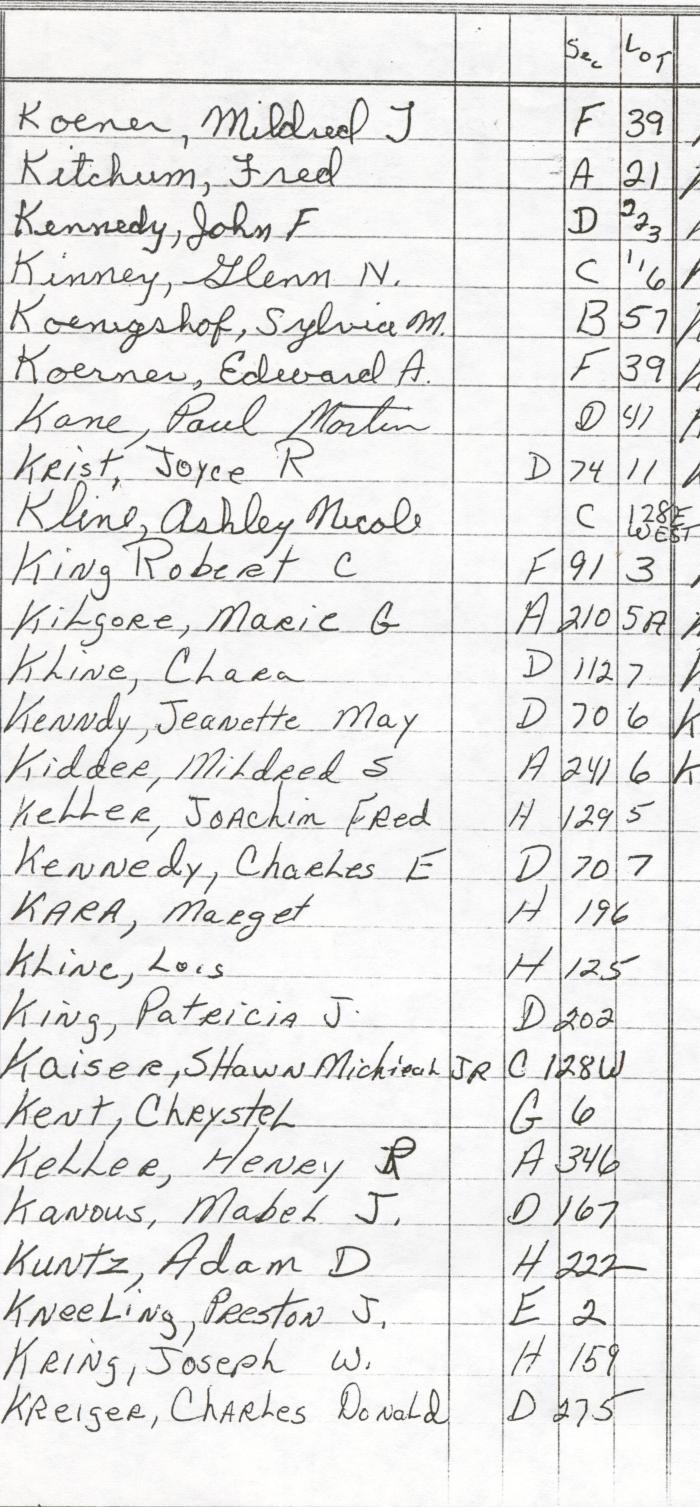 Sec Lot
Koener, Mildred J F 39
Kitchum, Fred A 21
Kennedy, John F D 223
Kinney, Glenn N. C 116
Koenigshof, Sylvia M. B 57
Koerner, Edward A. F 39
Kane, Paul Mortin D 41
Krist, Joyce R D 74 11
Kline, Ashley Nicole C 128E WEST
King Robert C F 91 3
Kilgore, Marie G A 210 5A
Kline, Clara D 112 7
Kenndy, Jeanette May D 70 6
Kidder, Mildred S A 241 6 K
Keller, Joachim Fred H 129 5
Kennedy, Charles E D 70 7
KARA, Marget H 196
Kline, Lois H 125
King, Patricia J. D 202
Kaiser, Shawn JR C 128W
Kent, Chrystel G 6
Keller, Henry R A 346
Kanous, Mabel J. D 167
Kuntz, Adam D H 222
Kneeling, Preston J. E 2
Kring, Joseph W. H 159
Kreiger, Charles Donald D 275